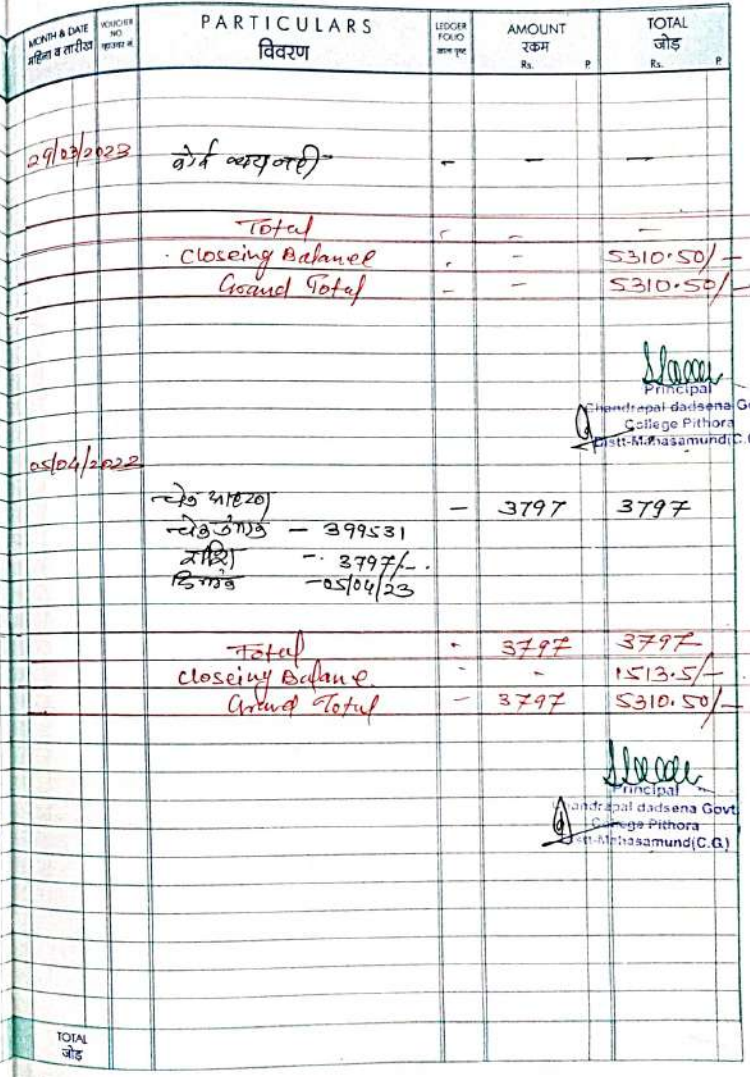 MONTH & DATE महिना व तारीख VOUCHER NO व्हाउचर नं. PARTICULARS विवरण LEDGER FOLIO खाता पृष्ठ AMOUNT रकम Rs. P. TOTAL जोड़ Rs. P.
29/03/2023 कोई व्यय नही - - - -
Total - - -
Closeing Balance - - 5310.50/-
Grand Total - - 5310.50/-
Principal
Chandrapal dadsena Go
College Pithora
Distt-Mahasamund(C.G
05/04/2022
चेक - 3797 3797
चेक क्रमांक - 399531
राशि - 3797/-
दिनांक - 05/04/23
Total - 3797 3797
Closeing Balance - - 1513.5/-
Grand Total - 3797 5310.50/-
Principal
Chandrapal dadsena Govt
College Pithora
Distt-Mahasamund(C.G.)
TOTAL
जोड़